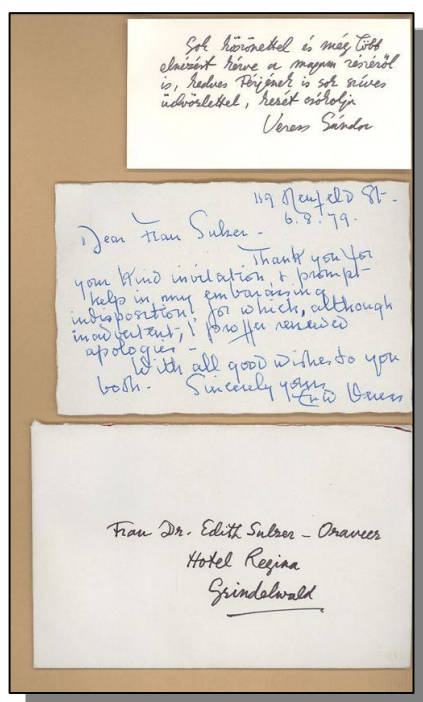 Sok köszönettel és még több
elnézést kérve a magam részéről
is, kedves Férjének is sok szíves
üdvözlettel, kezét csókolja
Veress Sándor
119 Neufeld St-
6.8.79.
Dear Frau Sulzer-
Thank you for
your kind invitation & prompt
help in my embarassing
indisposition! for which, although
inadvertent, I proffer renewed
apologies-
With all good wishes to you
both. Sincerely yours
Veress
Frau Dr. Edith Sulzer - Oravecz
Hotel Regina
Grindelwald